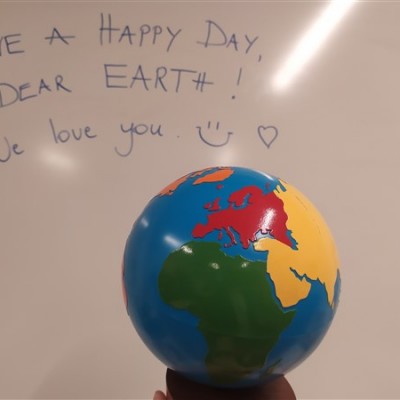 A HAPPY DAY,
DEAR EARTH!
love you. :) ♡